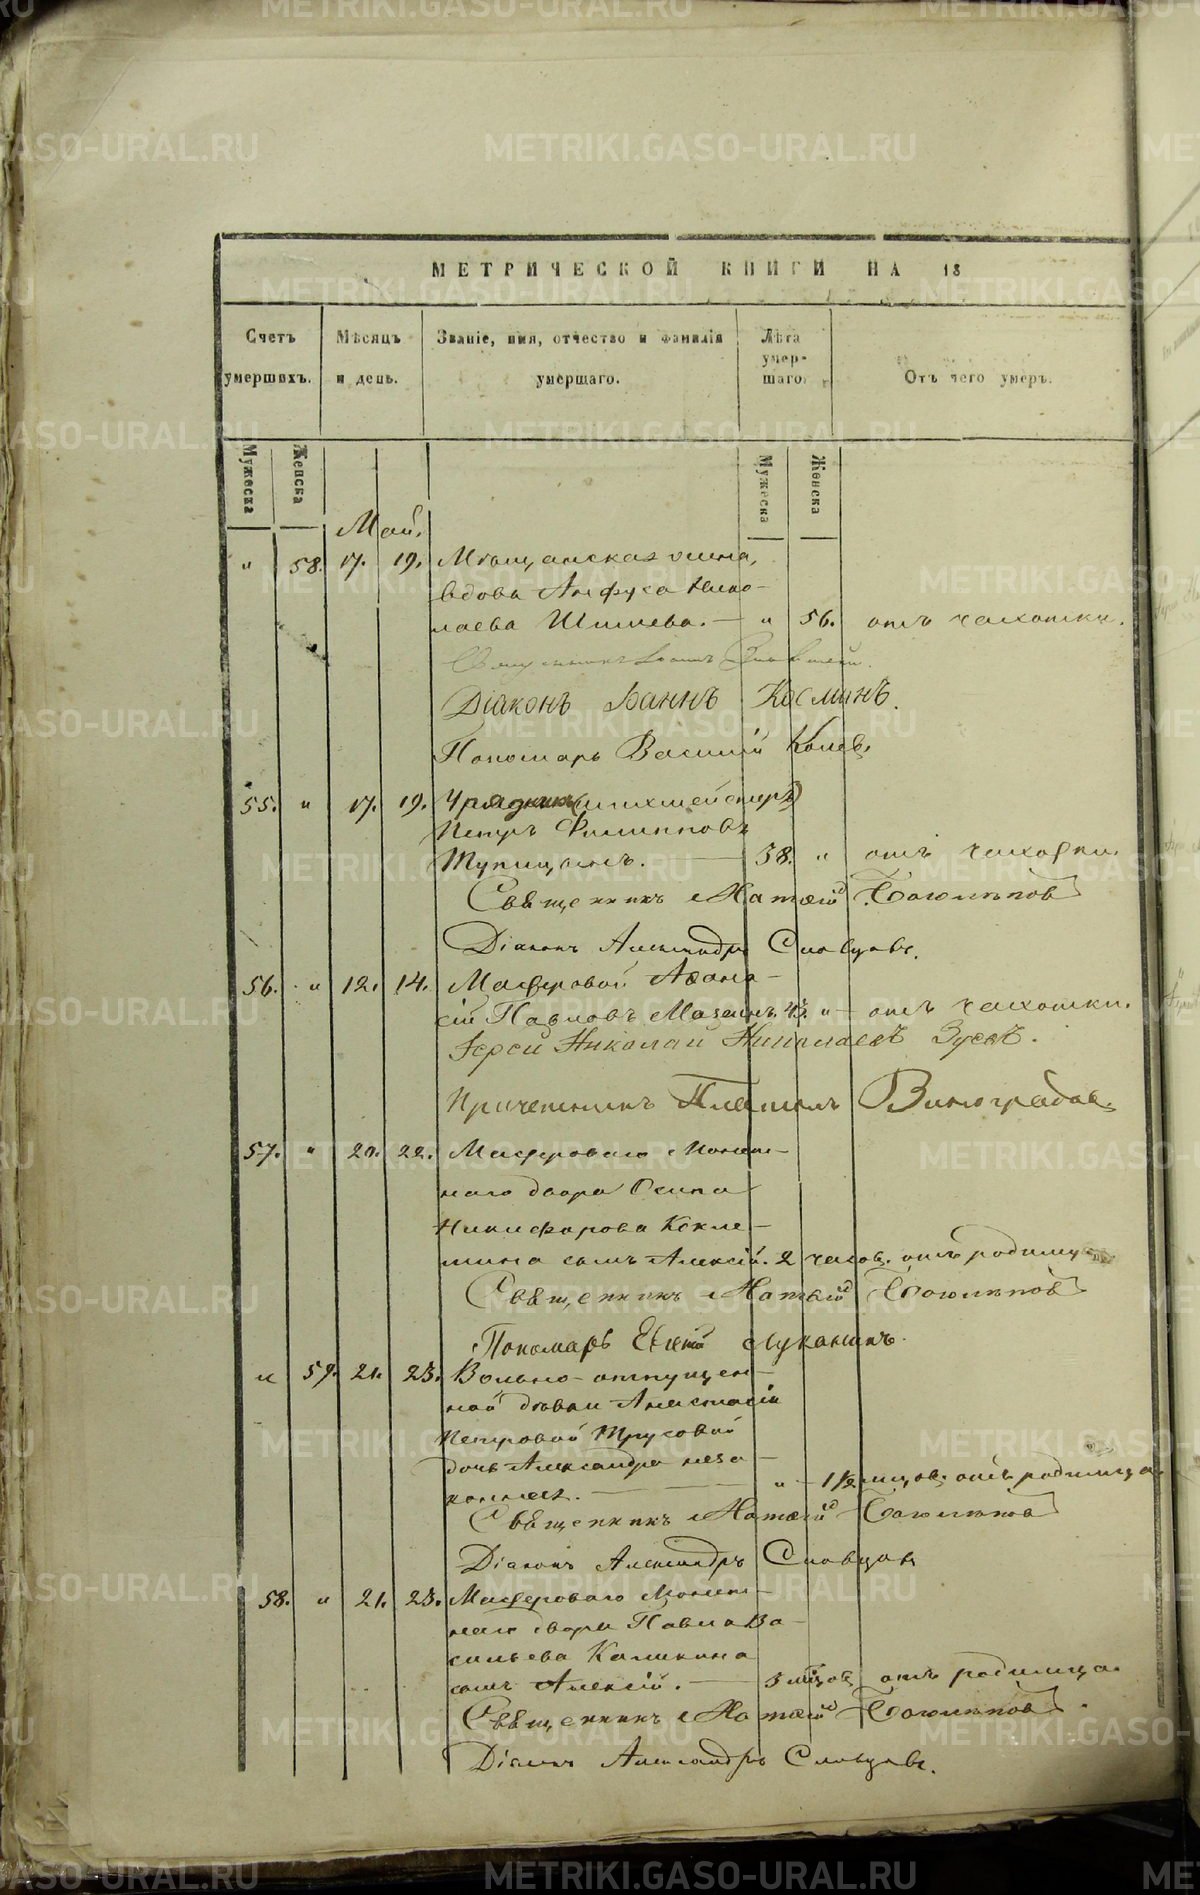 МЕТРИЧЕСКОЙ КНИГИ НА 18
Счетъ умершихъ.
Мѣсяцъ и день.
Званіе, имя, отчество и фамилія умершаго.
Лѣта умершаго.
Отъ чего умеръ.
Мужеска Женска Мужеска Женска
Май.
" 58. 17. 19. Мѣщанская жена,
вдова Анфуса Нико-
лаева Шилиева. — " 56. отъ чахотки.
Діаконъ Іоаннъ Косминъ.
Пономарь Василій Конев.
55. " 17. 19. Урядникъ (шихмейстеръ)
Петръ Филипповъ
Тупицынъ. — 38. " отъ чахотки.
Священникъ Матѳій
Діаконъ Александръ Словцовъ.
56. " 12. 14. Мастеровой Аѳана-
сій Павловъ Мазеинъ. 43. " отъ чахотки.
Іерей Николай Николаевъ Зуевъ.
Причетникъ Платонъ Виноградов.
57. " 20. 22. Мастероваго Монет-
наго двора Осипа
Никифорова Кокше-
сынъ Алексій. 2 часов. отъ родимца
Священникъ Матѳій
Пономарь Луканинъ.
" 59. 21. 23. Вольно-отпущен-
ной дѣвки Анастасіи
Петровой Трусовой
дочь Александра неза-
конная. — " 1½ мѣсяцов. отъ родимца.
Священникъ Матѳій
Діаконъ Александръ Словцовъ
58. " 21. 23. Мастероваго Монет-
наго двора Павла Ва-
сильева Каликина
сынъ Алексій. — 3 мѣсяцов отъ родимца.
Священникъ Матѳій
Діаконъ Александръ Словцовъ.
METRIKI.GASO-URAL.RU